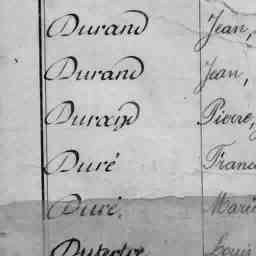 Durand Jean,
Durand Jean,
Durand Pierre,
Duré Franc
Duré. Marie
Dutertre Louis